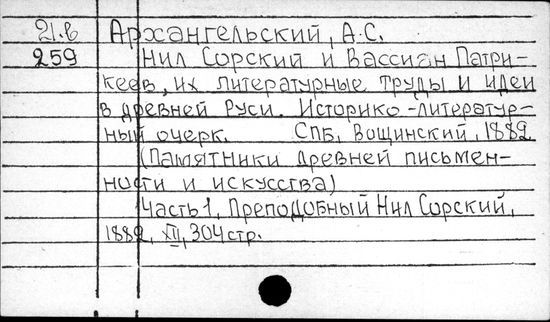 21.б Архангельский, А.С.
259 Нил Сорский и Вассиан Патри-
кеев, их литературные труды и идеи
в древней Руси. Историко-литератур-
ный очерк. СПБ, Вощинский, 1882
(Памятники древней письмен-
ности и искусства)
Часть 1, Преподобный Нил Сорский,
1882, XII, 304 стр.